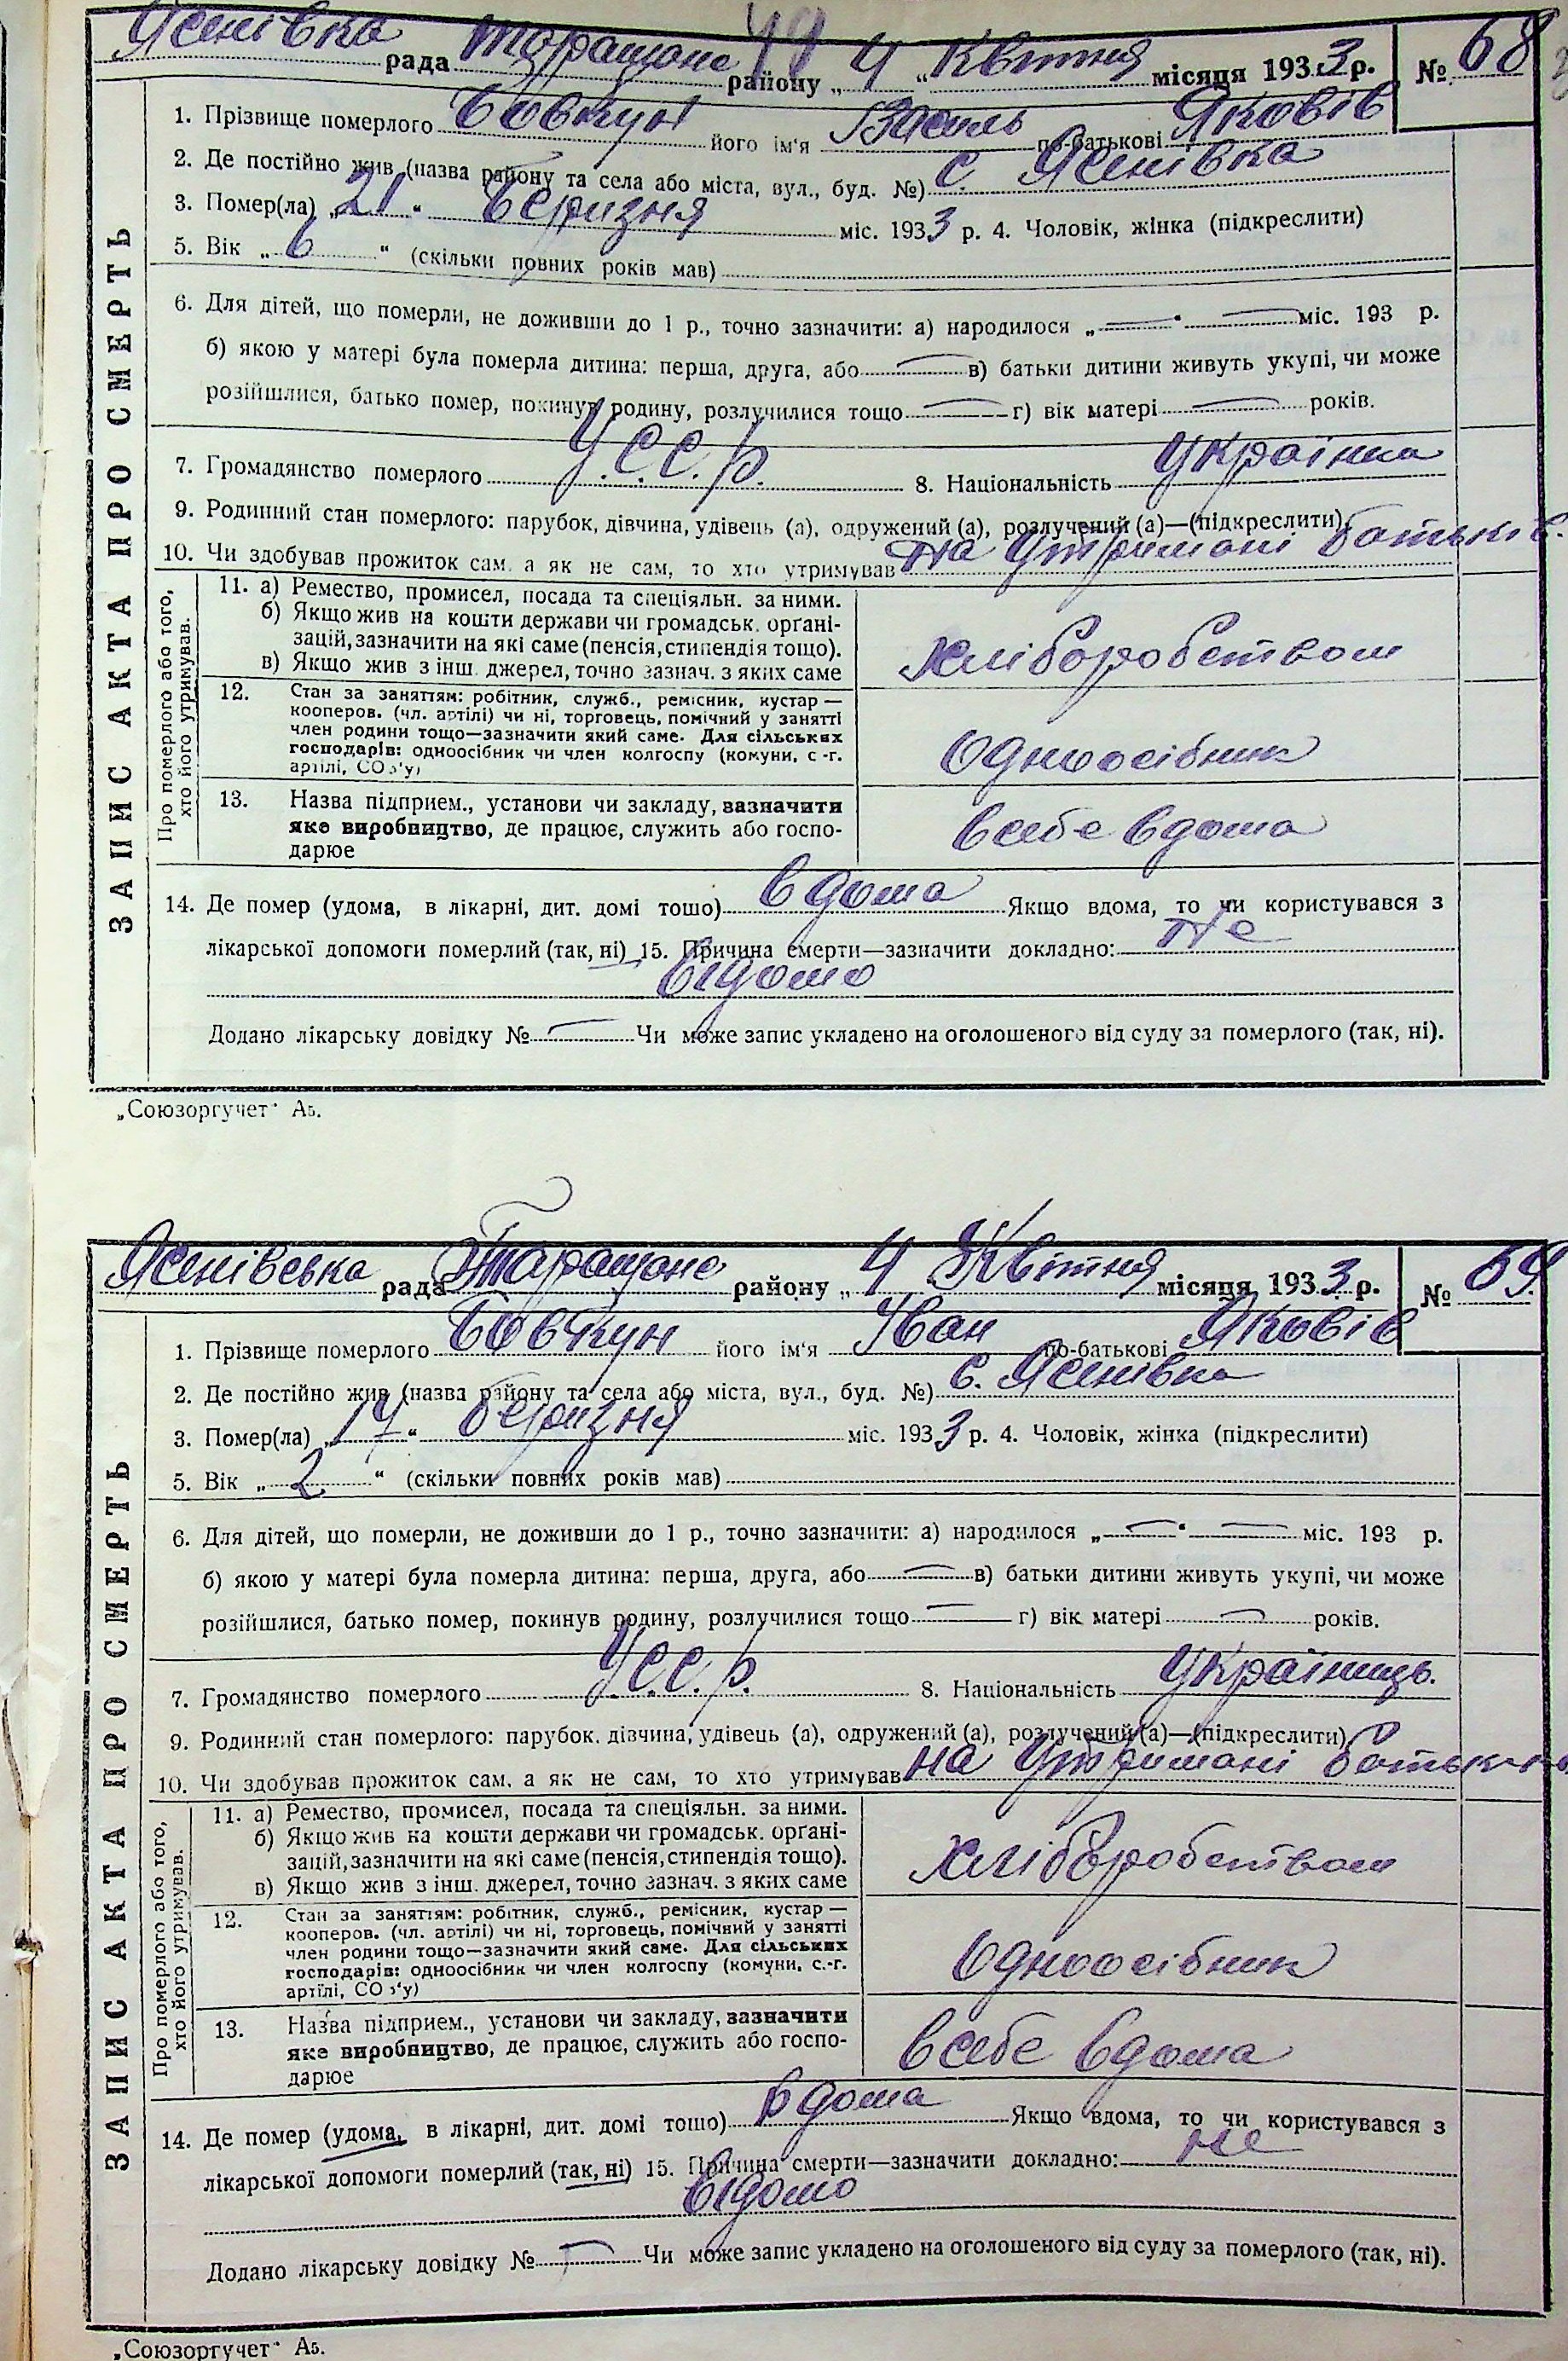 Ясенівка рада Таращанс району „ 4 “ Квітня місяця 1933 р. № 68
1. Прізвище померлого Бовкун його ім'я Василь по-батькові Яковів
2. Де постійно жив (назва району та села або міста, вул., буд. №) с. Ясенівка
3. Помер(ла) „ 21 “ березня міс. 1933 р. 4. Чоловік, жінка (підкреслити)
5. Вік „ 6 “ (скільки повних років мав)
6. Для дітей, що померли, не доживши до 1 р., точно зазначити: а) народилося „ — “ — міс. 193 р.
б) якою у матері була померла дитина: перша, друга, або — в) батьки дитини живуть укупі, чи може
розійшлися, батько помер, покинув родину, розлучилися тощо — г) вік матері — років.
7. Громадянство померлого У.С.С.р. 8. Національність Українка
9. Родинний стан померлого: парубок, дівчина, удівець (а), одружений (а), розлучений (а)—(підкреслити)
10. Чи здобував прожиток сам, а як не сам, то хто утримував На Утримані батьків.
ЗАПИС АКТА ПРО СМЕРТЬ
Про померлого або того, хто його утримував.
11. а) Ремество, промисел, посада та спеціяльн. за ними.
б) Якщо жив на кошти держави чи громадськ. орґані-
зацій, зазначити на які саме (пенсія, стипендія тощо).
в) Якщо жив з інш. джерел, точно зазнач. з яких саме
хліборобством
12. Стан за заняттям: робітник, служб., ремісник, кустар —
кооперов. (чл. артілі) чи ні, торговець, помічний у занятті
член родини тощо—зазначити який саме. Для сільських
господарів: одноосібник чи член колгоспу (комуни, с.-г.
артілі, СОЗ'у)
Одноосібник
13. Назва підприєм., установи чи закладу, вазначити
яке виробництво, де працює, служить або госпо-
дарює
в себе вдома
14. Де помер (удома, в лікарні, дит. домі тошо) вдома Якщо вдома, то чи користувався з
лікарської допомоги померлий (так, ні) 15. Причина смерти—зазначити докладно: Не
відомо
Додано лікарську довідку № — Чи може запис укладено на оголошеного від суду за померлого (так, ні).
„Союзоргучет“ А5.
Ясенівська рада Таращанс району „ 4 “ Квітня місяця 1933 р. № 69
1. Прізвище померлого Бовкун його ім'я Іван по-батькові Яковів
2. Де постійно жив (назва району та села або міста, вул., буд. №) с. Ясенівка
3. Помер(ла) „ 17 “ березня міс. 1933 р. 4. Чоловік, жінка (підкреслити)
5. Вік „ 2 “ (скільки повних років мав)
6. Для дітей, що померли, не доживши до 1 р., точно зазначити: а) народилося „ — “ — міс. 193 р.
б) якою у матері була померла дитина: перша, друга, або — в) батьки дитини живуть укупі, чи може
розійшлися, батько помер, покинув родину, розлучилися тощо — г) вік матері — років.
7. Громадянство померлого У.С.С.р. 8. Національність Українць.
9. Родинний стан померлого: парубок, дівчина, удівець (а), одружений (а), розлучений (а)—(підкреслити)
10. Чи здобував прожиток сам, а як не сам, то хто утримував на Утримані батьків
ЗАПИС АКТА ПРО СМЕРТЬ
Про померлого або того, хто його утримував.
11. а) Ремество, промисел, посада та спеціяльн. за ними.
б) Якщо жив на кошти держави чи громадськ. орґані-
зацій, зазначити на які саме (пенсія, стипендія тощо).
в) Якщо жив з інш. джерел, точно зазнач. з яких саме
хліборобством
12. Стан за заняттям: робітник, служб., ремісник, кустар —
кооперов. (чл. артілі) чи ні, торговець, помічний у занятті
член родини тощо—зазначити який саме. Для сільських
господарів: одноосібник чи член колгоспу (комуни, с.-г.
артілі, СОЗ'у)
Одноосібник
13. Назва підприєм., установи чи закладу, вазначити
яке виробництво, де працює, служить або госпо-
дарює
в себе вдома
14. Де помер (удома, в лікарні, дит. домі тошо) вдома Якщо вдома, то чи користувався з
лікарської допомоги померлий (так, ні) 15. Причина смерти—зазначити докладно: Не
відомо
Додано лікарську довідку № — Чи може запис укладено на оголошеного від суду за померлого (так, ні).
„Союзоргучет“ А5.